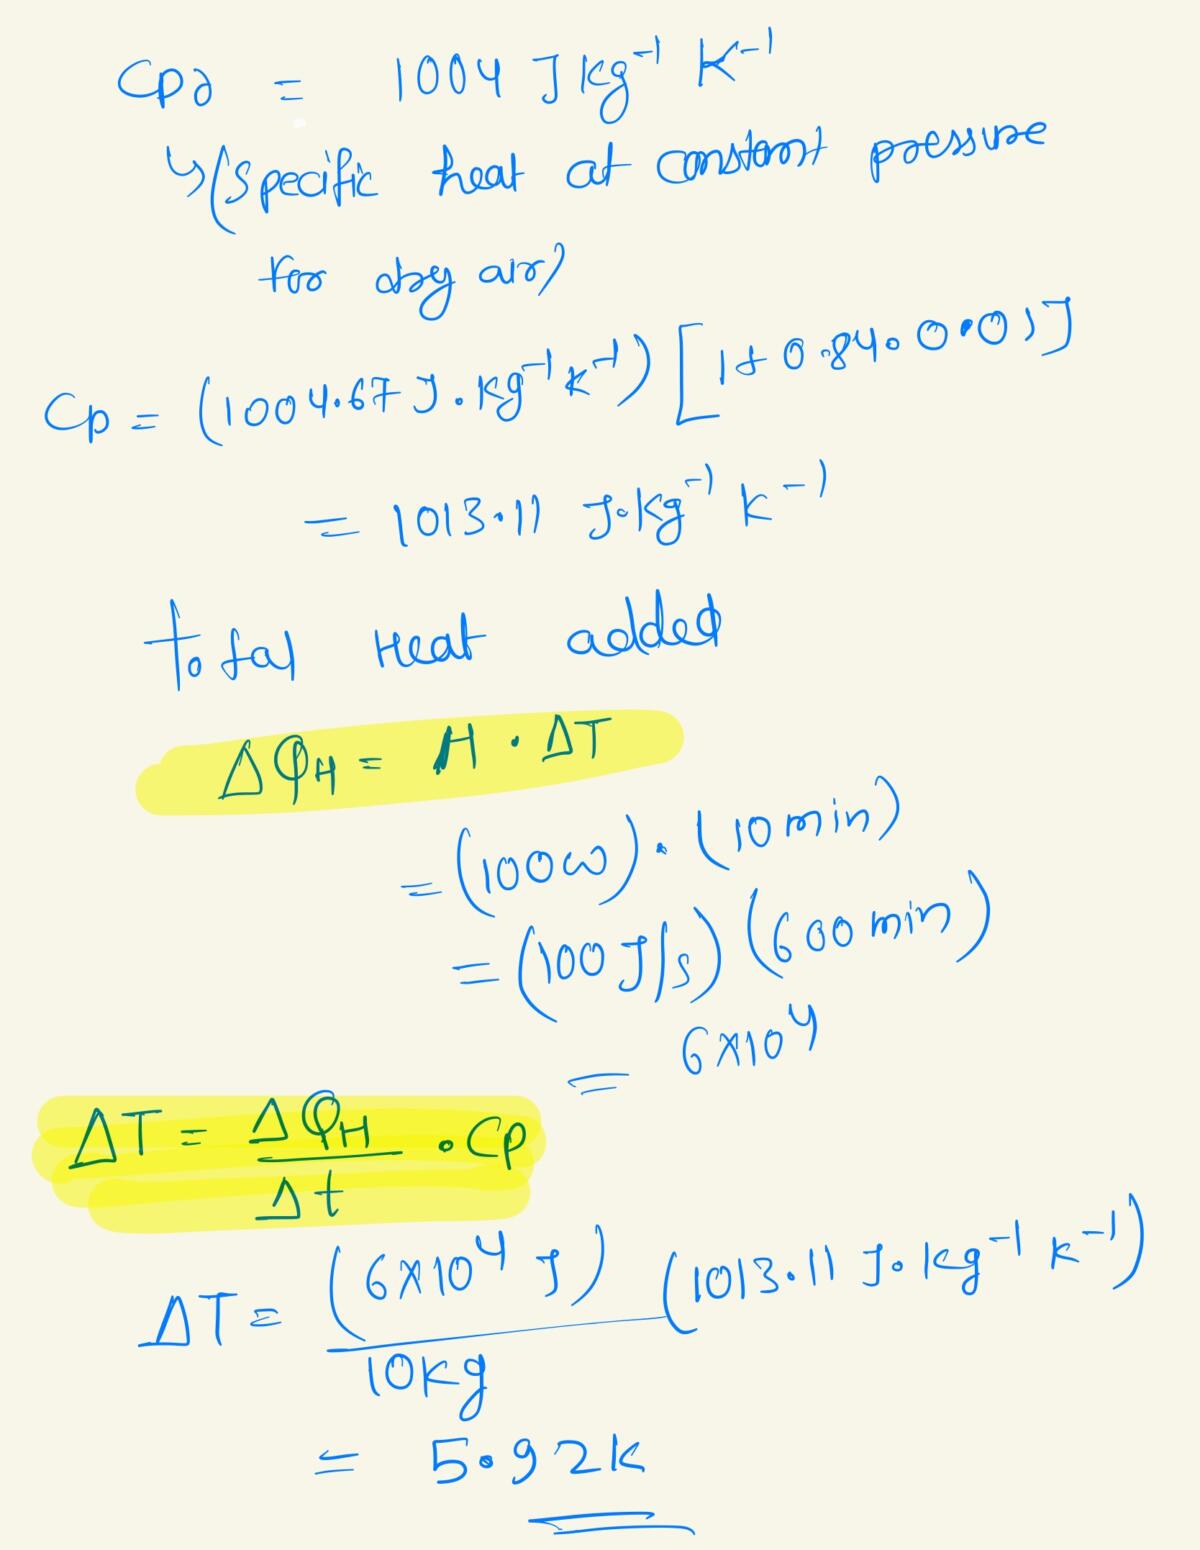 Cpd = 1004 J kg⁻¹ K⁻¹
↳(Specific heat at constant pressure
for dry air)
Cp = (1004.67 J.kg⁻¹K⁻¹) [1+0.84.0.01]
= 1013.11 J.kg⁻¹ K⁻¹
Total Heat added
ΔQH = H . ΔT
= (100W).(10min)
= (100 J/s)(600 min)
= 6×10⁴
ΔT = ΔQH/Δt . Cp
ΔT = (6×10⁴ J)/10kg (1013.11 J.kg⁻¹ K⁻¹)
= 5.92K